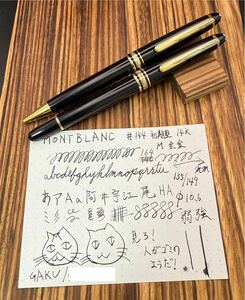 MONTBLANC #144 初期型 14K
164 M
abcdefghijklmnopqrstu
135/149
あアAa阿井宇江尾HA φ10.6
弱強
見ろ!
人がゴミの
ようだ!
GAKU